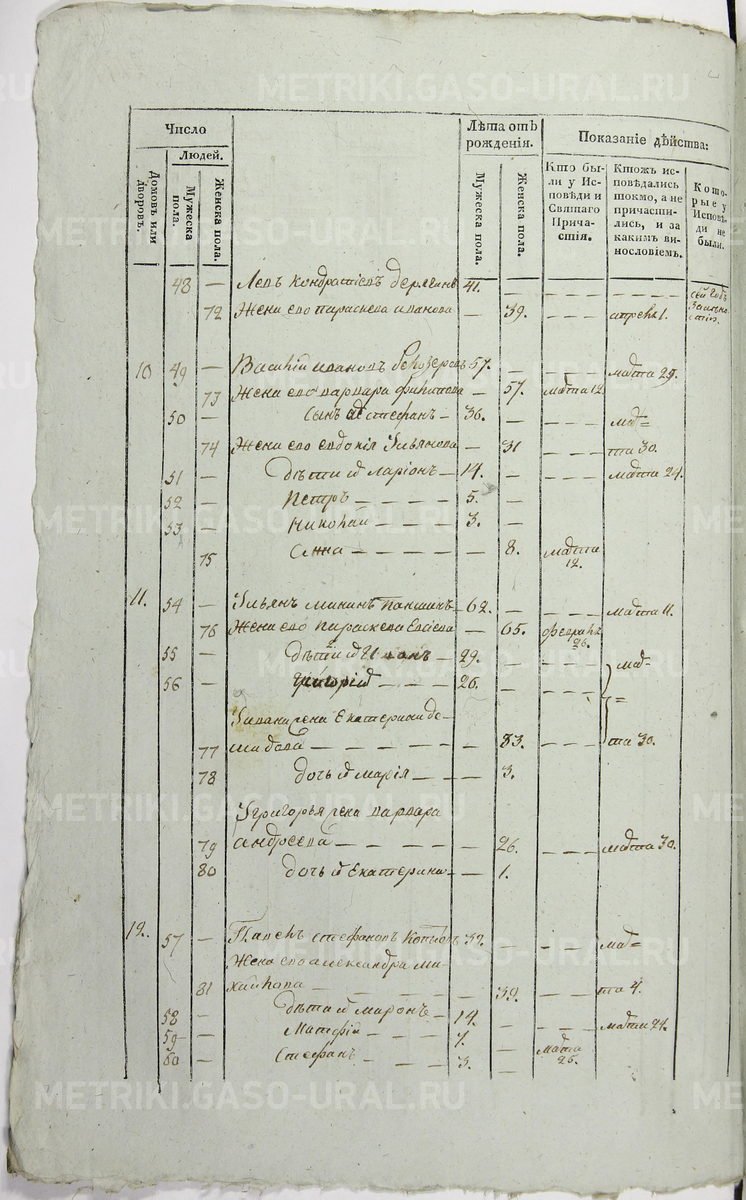 METRIKI.GASO-URAL.RU
Число
Людей.
Домовъ или дворовъ.
Мужеска пола.
Женска пола.
Лѣта отъ рожденія.
Мужеска пола.
Женска пола.
Показаніе дѣйства:
Кто бы-
ли у Ис-
повѣди и
Святаго
Прича-
стія.
Ктожъ ис-
повѣдались
токмо, а не
причасти-
лись, и за
какимъ ви-
нословіемъ.
Кото-
рые у
Исповѣ-
ди не
были.
48 — Левъ Кондратіевъ 41. — — —
72 Жена ево Параскева Иванова — 39. — — — апреля 1.
10 49 — Василій Ивановъ 57. — — — марта 29.
73 Жена ево Варвара Филипова — 57. марта 12.
50 — Сынъ Стефанъ — 36. — — — мар=
74 Жена ево Евдокія Ульянова — 31 — — — та 30.
51 — Дѣти Ларіонъ — 14. — — — — марта 24.
52 — Петръ — — — — 5. —
53 — Николай — — 3. —
75 Анна — — — — — 8. марта
12.
11. 54 — Ульянъ Мининъ Паншинъ 62. — — — — марта 11.
76 Жена ево Параскева Евсіева — 65. февраля
26.
55 — Дѣти Иванъ — 29. — — — — мар=
56 — Григорій — — — 26. — — — — =
У Ивана жена Екатерина Де-
77 мидова — — — — — 33. — — — та 30.
78 дочь Марія — — — 3.
У Григорья жена Варвара
79 Андреева — — — — — 26. — — — марта 30.
80 дочь Екатерина — — 1.
12. 57 — Павелъ Стефановъ Копыловъ 32. — — — — мар=
Жена ево Александра Ми-
81 хайлова — — — — — 39. — — — та 4.
58 — Дѣти Миронъ — 14. — — — — марта 24.
59 — Матфій — — — 7. —
60 — Стефанъ — — — 3. — марта
25.